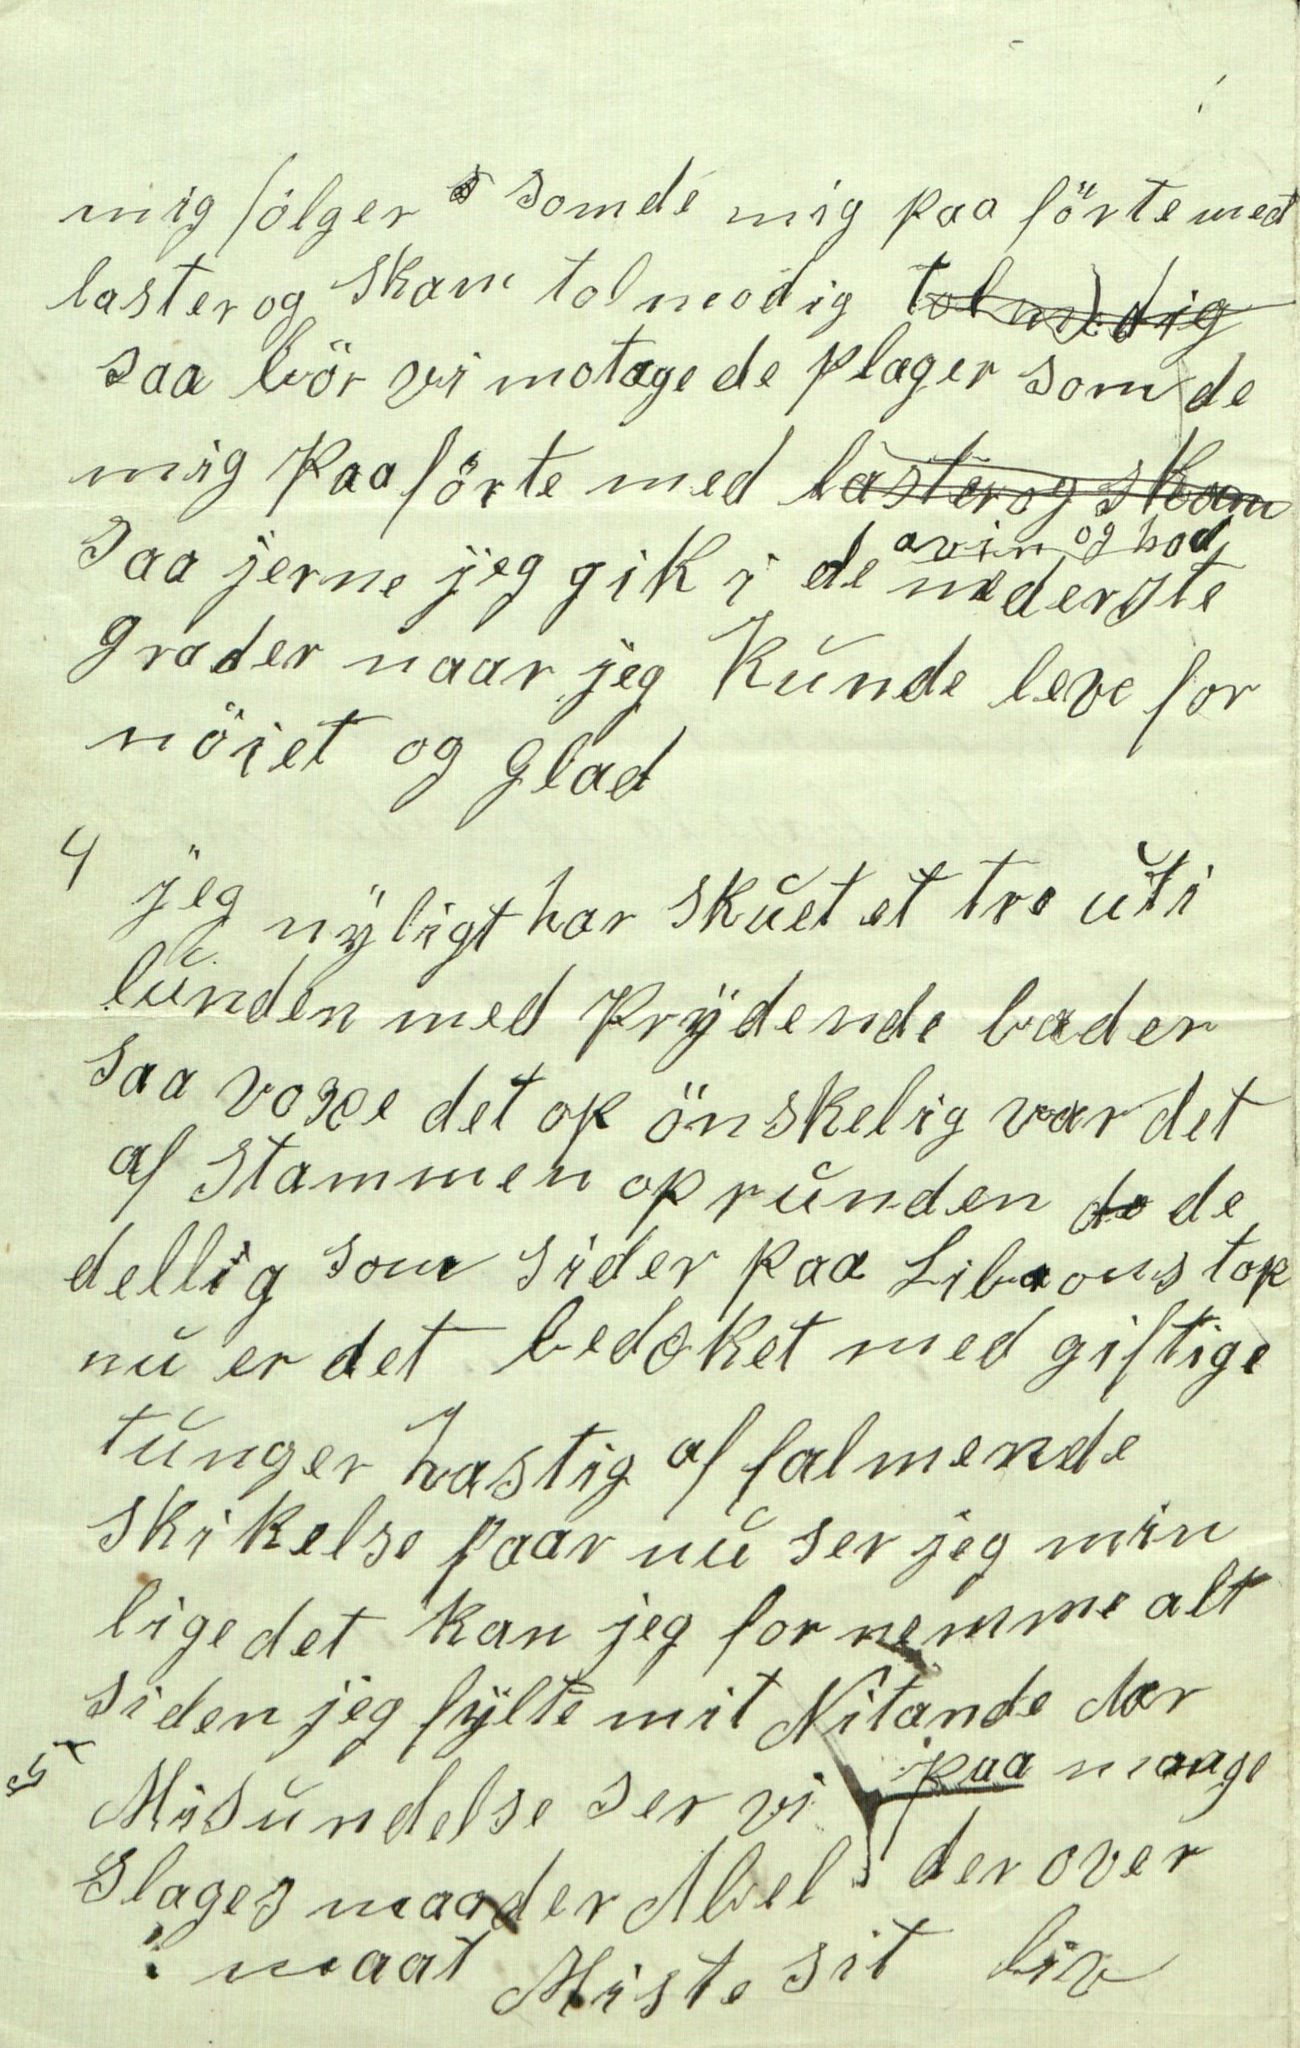 mig følger som de mig paa förte med
laster og Skam tolmodig tolmodig
saa bör vi motage de plager som de
mig paa förte med laster og skam
avin og had
saa jerne jeg gik i de nederste
grader naar jeg Kunde leve for
nöiet og glad
4 jeg nyligt har skuet et tre uti
lunden med Prydende bader
saa voxe det op önskelig var det
af Stammen op runden de de
dellig som sider paa Libaons top
nu er det bedøket med giftige
tunger hastig af falmende
skikelse paar nu ser jeg min
lige det kan jeg for nemme alt
siden jeg fylte mit Nitande Aar
5 Misundelse ser vi paa mange
Slages maader Abel der over
maat Miste sit liv